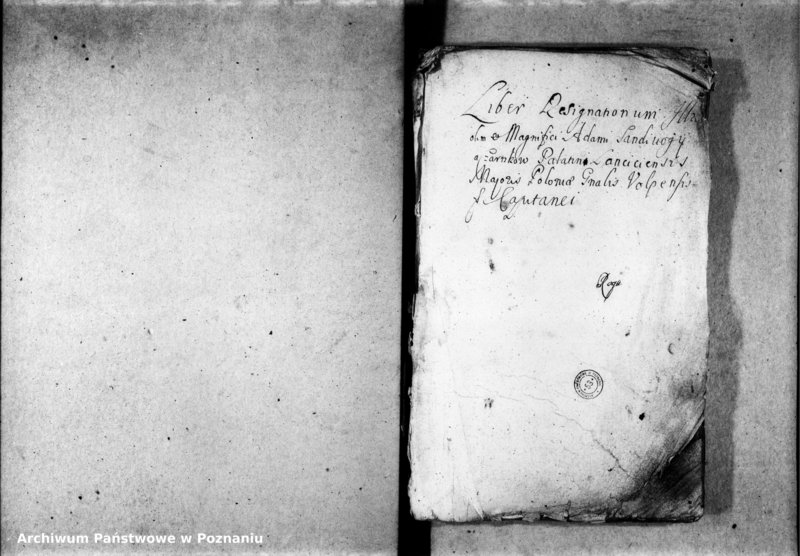 Liber Resignationum Illr
olim & Magnifici Adami Sandivogÿ
Czarnków Palatini Lanciciensis
Majoris Poloniæ Gnalis Volpensis
Capitanei
Archiwum Państwowe w Poznaniu